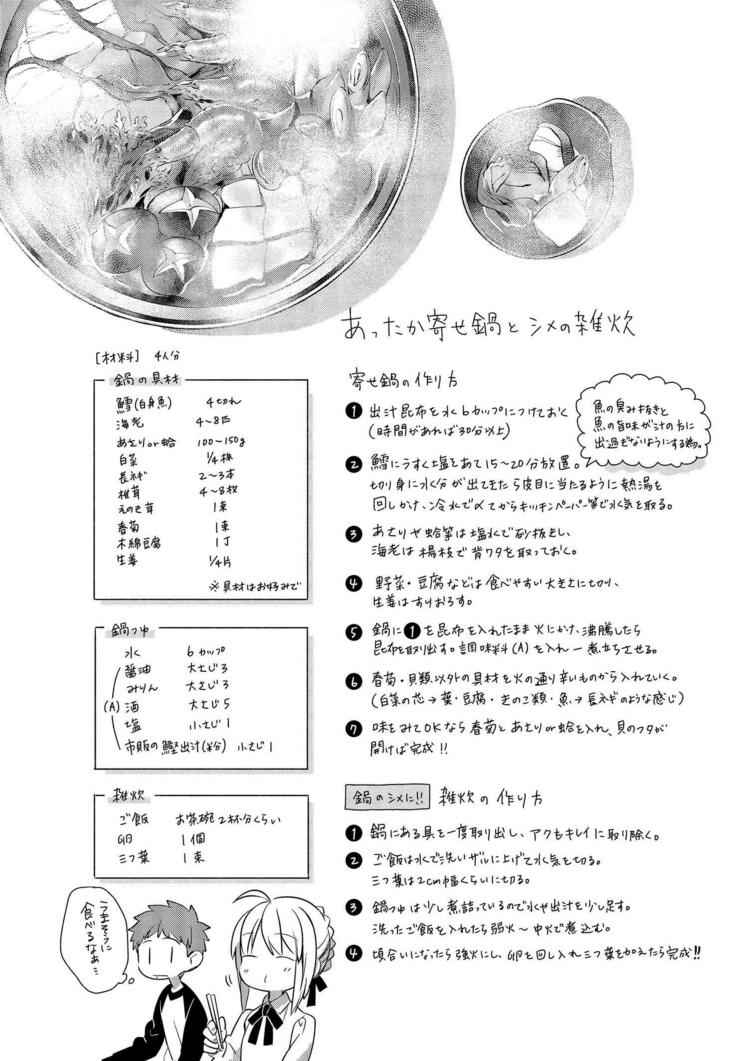 あったか寄せ鍋とシメの雑炊
[材料] 4人分
鍋の具材
鱈(白身魚) 4切れ
海老 4〜8匹
あさりor蛤 100〜150g
白菜 1/4株
長ネギ 2〜3本
椎茸 4〜8枚
えのき茸 1束
春菊 1束
木綿豆腐 1丁
生姜 1/4片
※具材はお好みで
鍋つゆ
水 6カップ
(A)
醤油 大さじ3
みりん 大さじ3
酒 大さじ5
塩 小さじ1
市販の鰹出汁(粉) 小さじ1
雑炊
ご飯 お茶碗2杯分くらい
卵 1個
三つ葉 1束
うまそうに
食べるなぁ…
寄せ鍋の作り方
❶ 出汁昆布を水6カップにつけておく
(時間があれば30分以上)
魚の臭み抜きと
魚の旨味が汁の方に
出過ぎないようにする為。
❷ 鱈にうすく塩をあて15〜20分放置。
切り身に水分が出てきたら皮目に当たるように熱湯を
回しかけ、冷水で〆てからキッチンペーパー等で水気を取る。
❸ あさりや蛤等は塩水で砂抜きし、
海老は楊枝で背ワタを取っておく。
❹ 野菜・豆腐などは食べやすい大きさに切り、
生姜はすりおろす。
❺ 鍋に❶を昆布を入れたまま火にかけ、沸騰したら
昆布を取出す。調味料(A)を入れ一煮立ちさせる。
❻ 春菊・貝類以外の具材を火の通り辛いものから入れていく。
(白菜の芯→葉・豆腐・きのこ類・魚→長ネギのような感じ)
❼ 味をみてOKなら春菊とあさりor蛤を入れ、貝のフタが
開けば完成!!
鍋のシメに!! 雑炊の作り方
❶ 鍋にある具を一度取り出し、アクもキレイに取り除く。
❷ ご飯は水で洗いザルに上げて水気を切る。
三つ葉は2cm幅くらいに切る。
❸ 鍋つゆは少し煮詰っているので水や出汁を少し足す。
洗ったご飯を入れたら弱火〜中火で煮込む。
❹ 頃合いになったら強火にし、卵を回し入れ三つ葉を加えたら完成!!